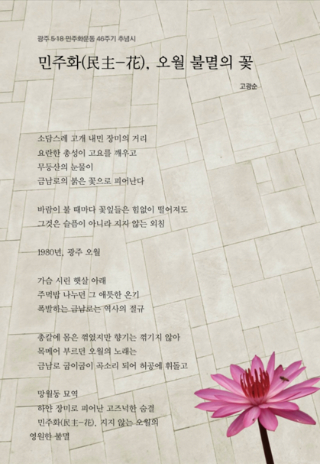 광주 5·18 민주화운동 46주기 추념시
민주화(民主-花), 오월 불멸의 꽃
고광순
소담스레 고개 내민 장미의 거리
요란한 총성이 고요를 깨우고
무등산의 눈물이
금남로의 붉은 꽃으로 피어난다
바람이 불 때마다 꽃잎들은 힘없이 떨어져도
그것은 슬픔이 아니라 지지 않는 외침
1980년, 광주 오월
가슴 시린 햇살 아래
주먹밥 나누던 그 애틋한 온기
폭발하는 금남로는 역사의 절규
총칼에 몸은 꺾였지만 향기는 꺾이지 않아
목메어 부르던 오월의 노래는
금남로 굽이굽이 곡소리 되어 허공에 휘돌고
망월동 묘역
하얀 장미로 피어난 고즈넉한 숨결
민주화(民主-花), 지지 않는 오월의
영원한 불멸